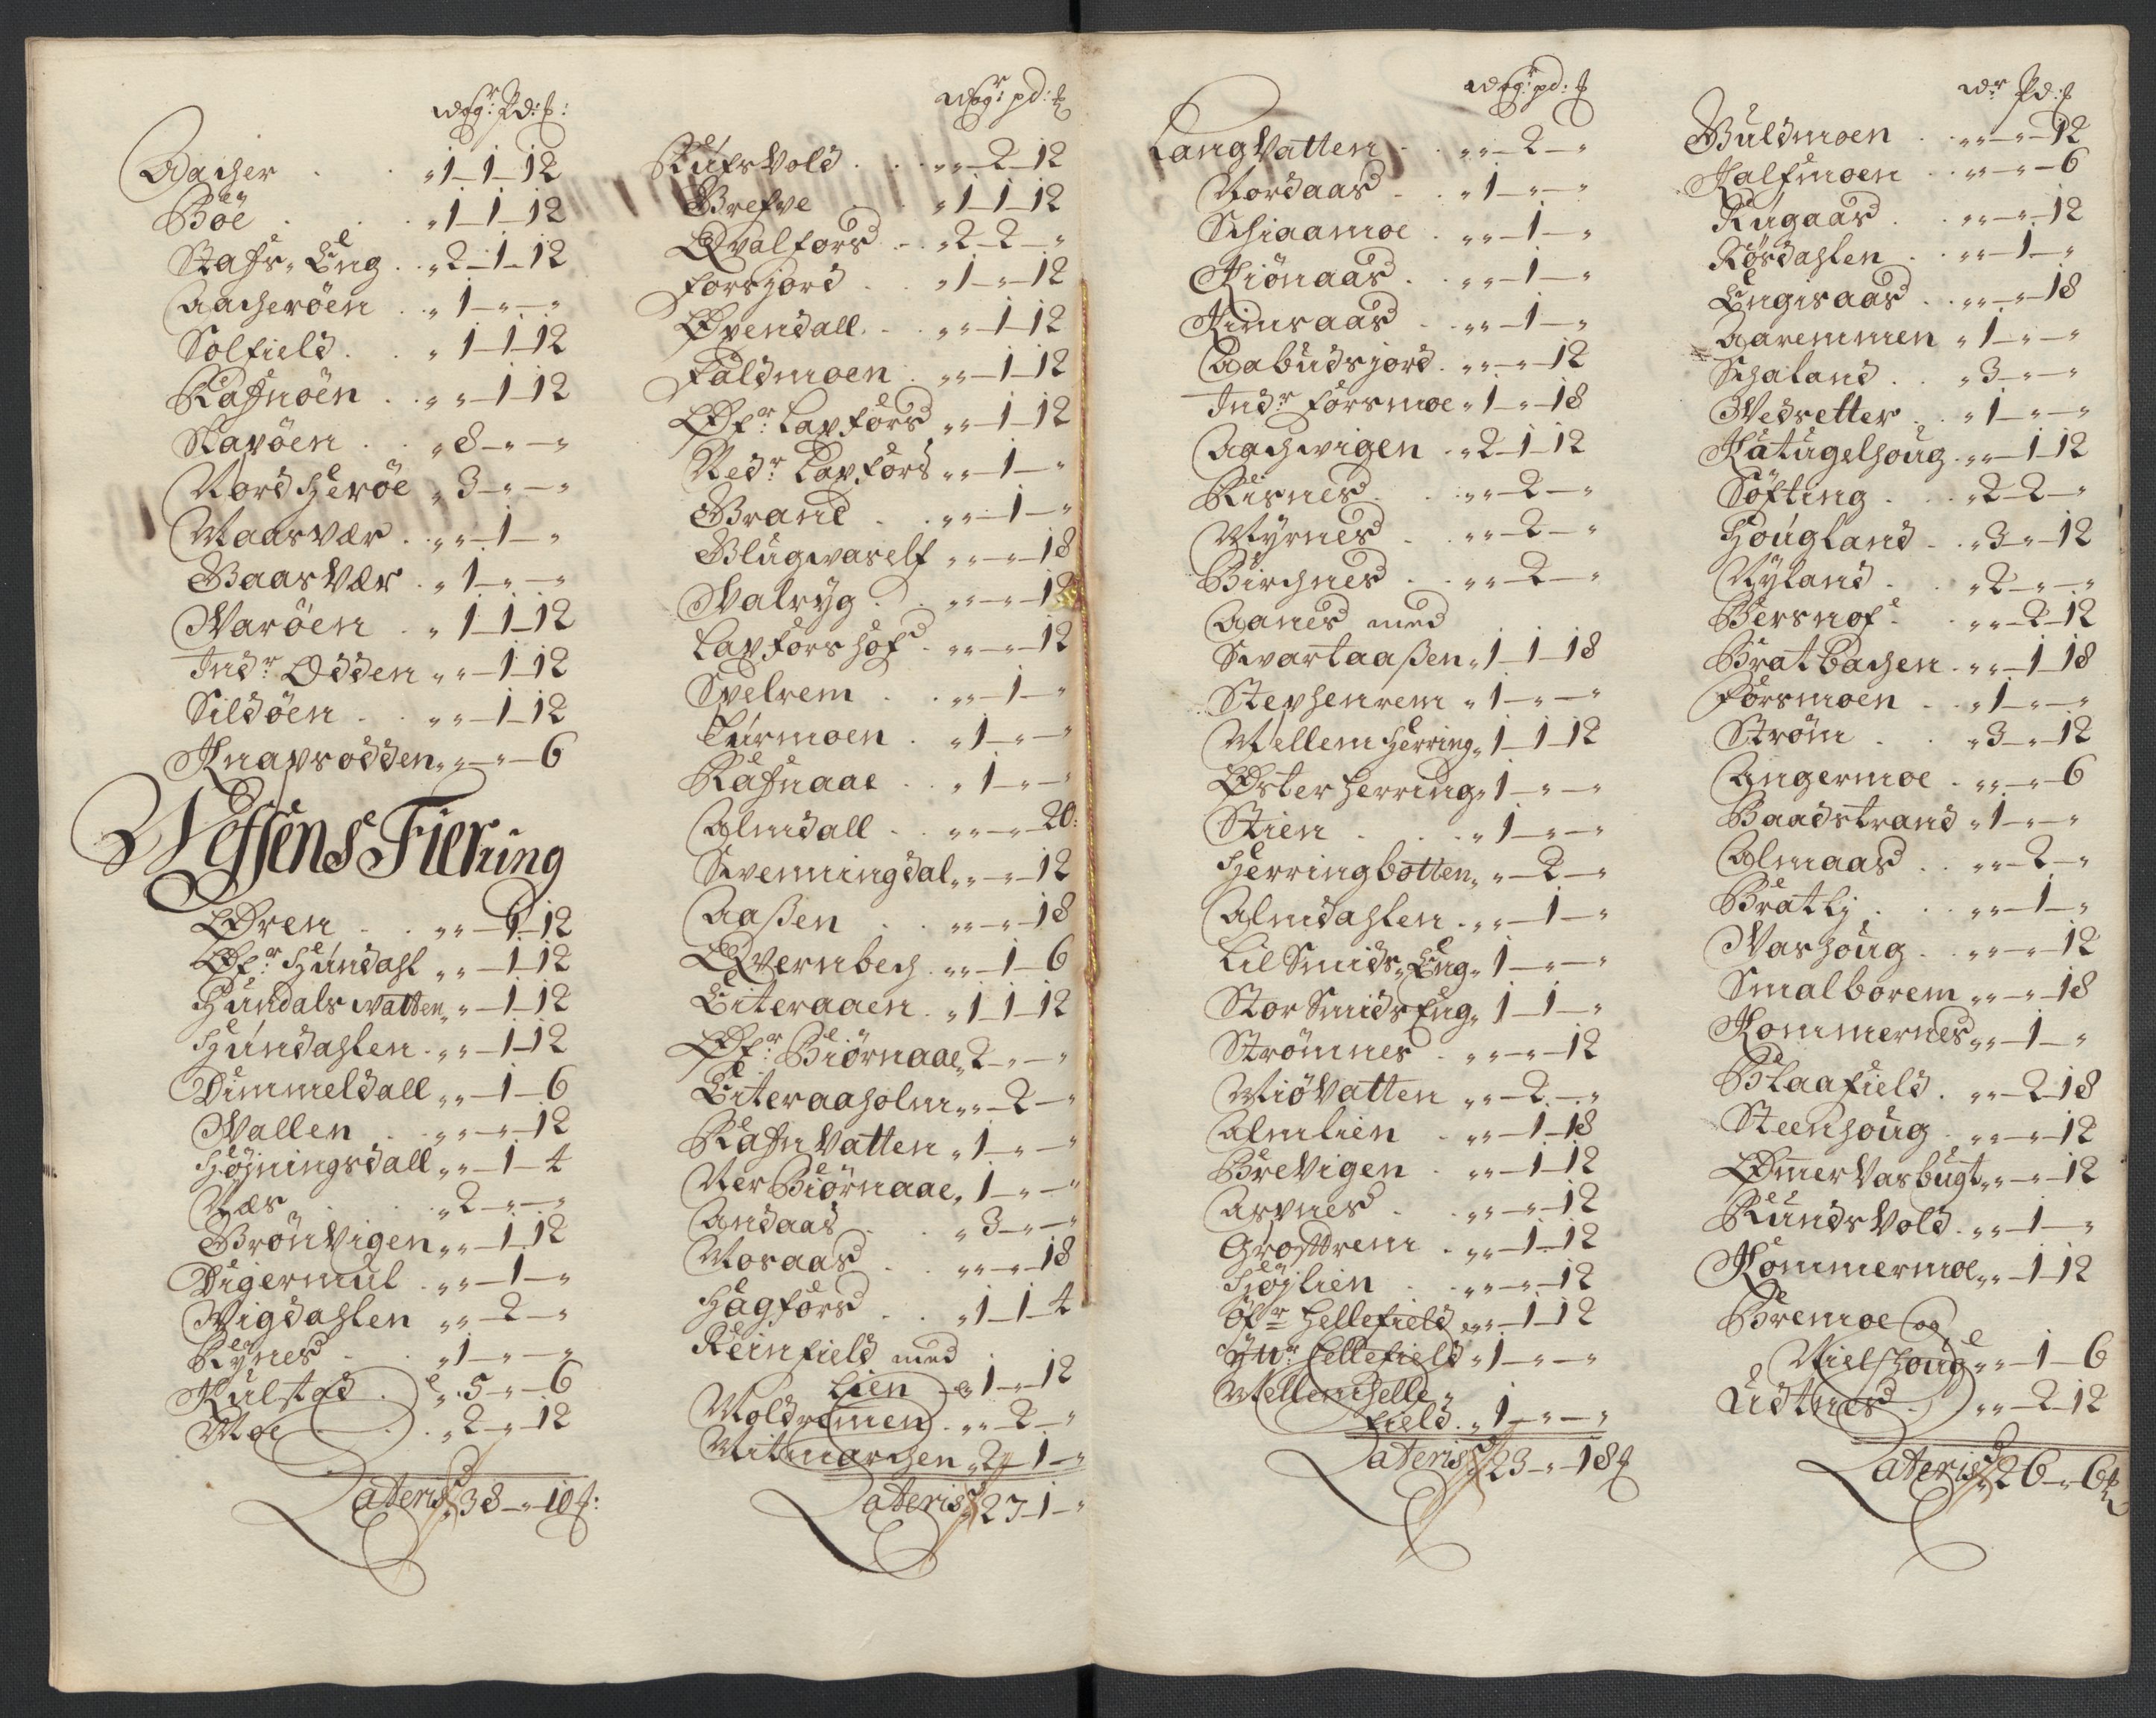 wog: Pd: ℔:
Aacher . . „1–1–12
Böe . . „1–1–12
Stafs„ Eng . . „2–1–12
Aacheröen . „1–„–„
Solfield . . „1–1–12
Rafnöen . . „„–1–12
Stapöen . . „8–„–„
Nord Heröe „3–„–„
Maasvær . „„–1–„
Baasvær . „1–„–„
Waröen . „1–1–12
Indr: Odden „„–1–12
Sildöen . . „„–1–12
Knapsodden „„–„–6
Wefsens Fierning
Ørem . . „„–1–12
Øfr: Hundahl „„–1–12
Hundalsvatten „„–1–12
Hundahlen . „„–1–12
Dimmeldall „„–1–6
Wallen . . „„–„–12
Höjningsdall „„–1–4
Næs . . „2–„–„
Brönvigen „„–1–12
Digermul . „„–1–„
Wigdahlen „„–2–„
Rÿnes . . „1–„–„
Kulstad . „5–„–6
Moe . . „2–„–12
Lateris „38–„–10 ℔:
wog: pd: ℔
Rufsvold . . „„–2–12
Brefve . . „1–1–12
Qvalfors . . „2–2–„
Forsjord . . „1–„–12
Øvendall . . „„–1–12
Faldmoen . „„–1–12
Øfr: Laxfors „„–1–12
Nedr: Laxfors „„–1–„
Brane . . „„–1–„
Blugvaself „„–„–18
Walryg . . „„–„–12
Laxforshof . „„–„–12
Svelrem . . „„–1–„
Turmoen . „1–„–„
Rafnaae . . „1–„–„
Almdall . . „„–„–20:
Svenningdal „„–„–12
Aaßen . . „„–„–18
Qvernbech . „„–1–6
Eiteraaen . „1–1–12
Øfr: Biörnaae „2–„–„
Eiteraaholm „„–2–„
Rafnvatten „1–„–„
Ner Biörnaae „1–„–„
Andaas . . „3–„–„
Mosaas . . „„–„–18
Hagfors . . „1–1–4
Reinfield med
Lien „1–„–12
Moldremen . „„–2–„
Mitmarchen „2–1–„
Lateris „27–1–„
wog: pd: ℔
Langvatten . „„–2–„
Nordaas . . „1–„–„
Schiaamoe . „„–1–„
Kiönaas . . „„–1–„
Kimsaas . . „„–1–„
Aabudsjord . „„–„–12
Indr: Forsmoe „1–„–18
Aachvigen . „2–1–12
Risnes . . „„–2–„
Myrnes . . „„–2–„
Birchnes . . „„–2–„
Aanes med
Svartaaßen „1–1–18
Stephenrem „1–„–„
Mellem Herring „1–1–12
Øster Herring „1–„–„
Stien . . „1–„–„
Herringbotten „„–2–„
Almdahlen . „„–1–„
Lil Smids„ Eng „1–„–„
Stor Smids Eng „1–1–„
Strömnes . „„–„–12
Miövatten „„–2–„
Almlien . „„–1–18
Brevigen . „„–1–12
Aspnes . . „„–„–12
Grofftrem . „„–1–12
Höjlien . . „„–„–12
Öfr: Hellefield „„–1–12
Ÿtr: Hellefield „1–„–„
Mellem Helle„
field . „1–„–„
Lateris „23–„–18 ℔
wr Pd: ℔
Buldmoen . „„–„–12
Kalfmoen . „„–„–6
Rugaas . . „„–„–12
Rösdahlen . „„–1–„
Engisaas . „„–„–18
Aaremmen „1–„–„
Schaland . . „3–„–„
Wedsetter . „1–„–„
Katugelhoug . „„–1–12
Söfting . . „2–2–„
Hougland . . „3–„–12
Nyland . . „2–„–„
Bersnof . . „„–2–12
Bratbachen . „„–1–18
Forsmoen . „1–„–„
Ström . . „3–„–12
Angermoe . „„–„–6
Baadstrand „1–„–„
Almaas . . „„–2–„
Bratlj . . „„–1–„
Washoug . „„–„–12
Smalborem „„–„–18
Kommernes „„–1–„
Blaafield . „„–2–18
Steenhoug . „„–„–12
Ømmervasbugt „„–„–12
Rundsvold . „„–1–„
Kommermoe „„–1–12
Bremoe og
Nielshoug „„–1–6
Ludtnes . . „„–2–12
Lateris „26–„–6 ℔